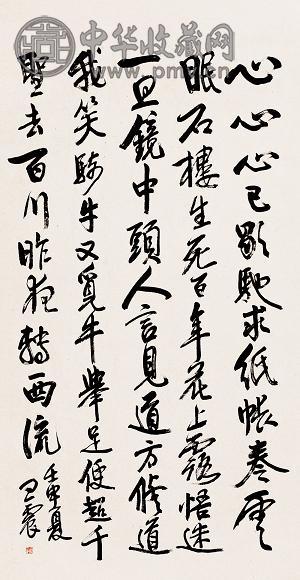 中华收藏网
心心心已歇馳求紙帳卷雲
眠石樓生死百年花上露悟迷
一旦鏡中頭人言見道方修道
我笑騎牛又覓牛舉足便超千
聖去百川昨夜轉西流
壬申夏
王震